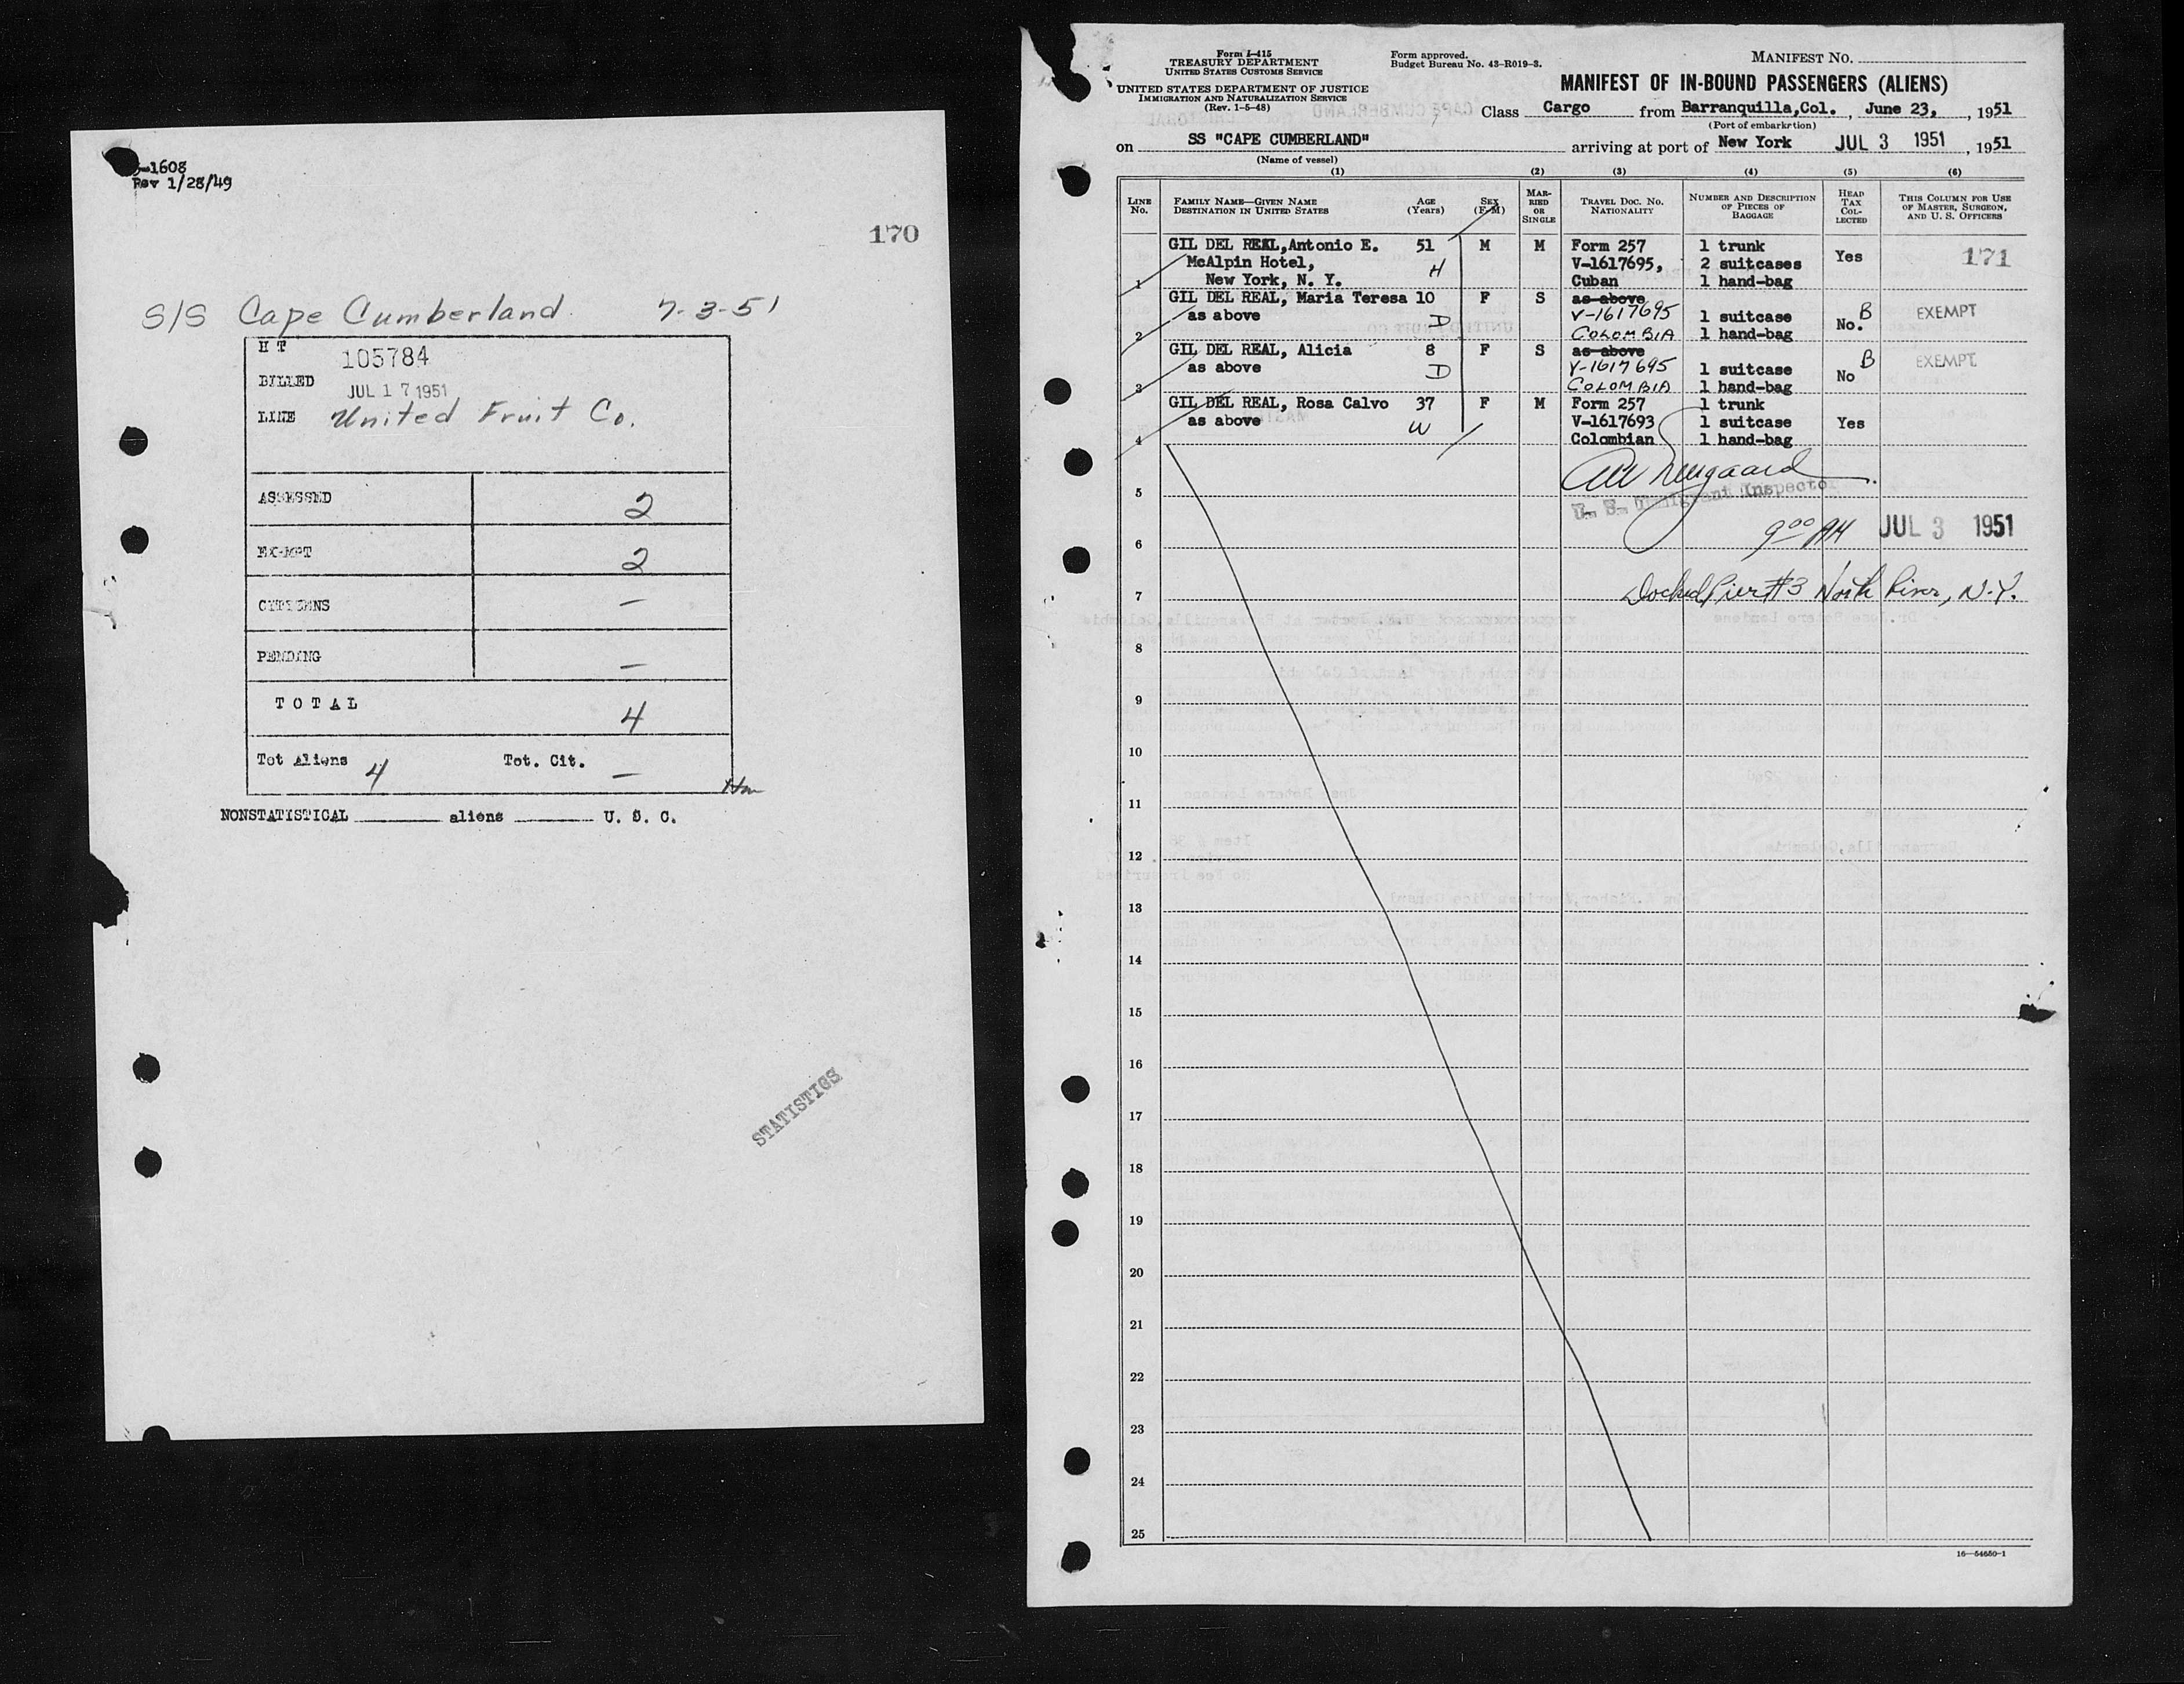 -1608
Rev 1/28/49
170
S/S Cape Cumberland 7-3-51
H T 105784
BILLED JUL 17 1951
LINE United Fruit Co.
ASSESSED 2
EXEMPT 2
CITIZENS —
PENDING —
TOTAL 4
Tot Aliens 4 Tot. Cit. —
NONSTATISTICAL ______ aliens ______ U. S. C.
STATISTICS
Form I-415
TREASURY DEPARTMENT
UNITED STATES CUSTOMS SERVICE
UNITED STATES DEPARTMENT OF JUSTICE
IMMIGRATION AND NATURALIZATION SERVICE
(Rev. 1-5-48)
Form approved.
Budget Bureau No. 43-R019-3.
MANIFEST NO.
MANIFEST OF IN-BOUND PASSENGERS (ALIENS)
Class Cargo from Barranquilla,Col., June 23, , 1951
(Port of embarkation)
on SS "CAPE CUMBERLAND" arriving at port of New York JUL 3 1951, 1951
(Name of vessel)
(1) (2) (3) (4) (5) (6)
LINE No.
FAMILY NAME—GIVEN NAME
DESTINATION IN UNITED STATES
AGE (Years)
SEX (F-M)
MARRIED OR SINGLE
TRAVEL DOC. NO.
NATIONALITY
NUMBER AND DESCRIPTION OF PIECES OF BAGGAGE
HEAD TAX COLLECTED
THIS COLUMN FOR USE OF MASTER, SURGEON, AND U. S. OFFICERS
GIL DEL REAL,Antonio E. 51 M M Form 257 1 trunk
McAlpin Hotel, H V-1617695, 2 suitcases Yes 171
1 New York, N. Y. Cuban 1 hand-bag
GIL DEL REAL, Maria Teresa 10 F S as above
as above D V-1617695 1 suitcase No. B EXEMPT
2 COLOMBIA 1 hand-bag
GIL DEL REAL, Alicia 8 F S as above
as above D V-1617695 1 suitcase No B EXEMPT
3 COLOMBIA 1 hand-bag
GIL DEL REAL, Rosa Calvo 37 F M Form 257 1 trunk
as above W V-1617693 1 suitcase Yes
4 Colombian 1 hand-bag
5
U. S. Immigrant Inspector
6 9 00 AM JUL 3 1951
7 Docked Pier #3 North River, N.Y.
8
9
10
11
12
13
14
15
16
17
18
19
20
21
22
23
24
25
16—54650-1